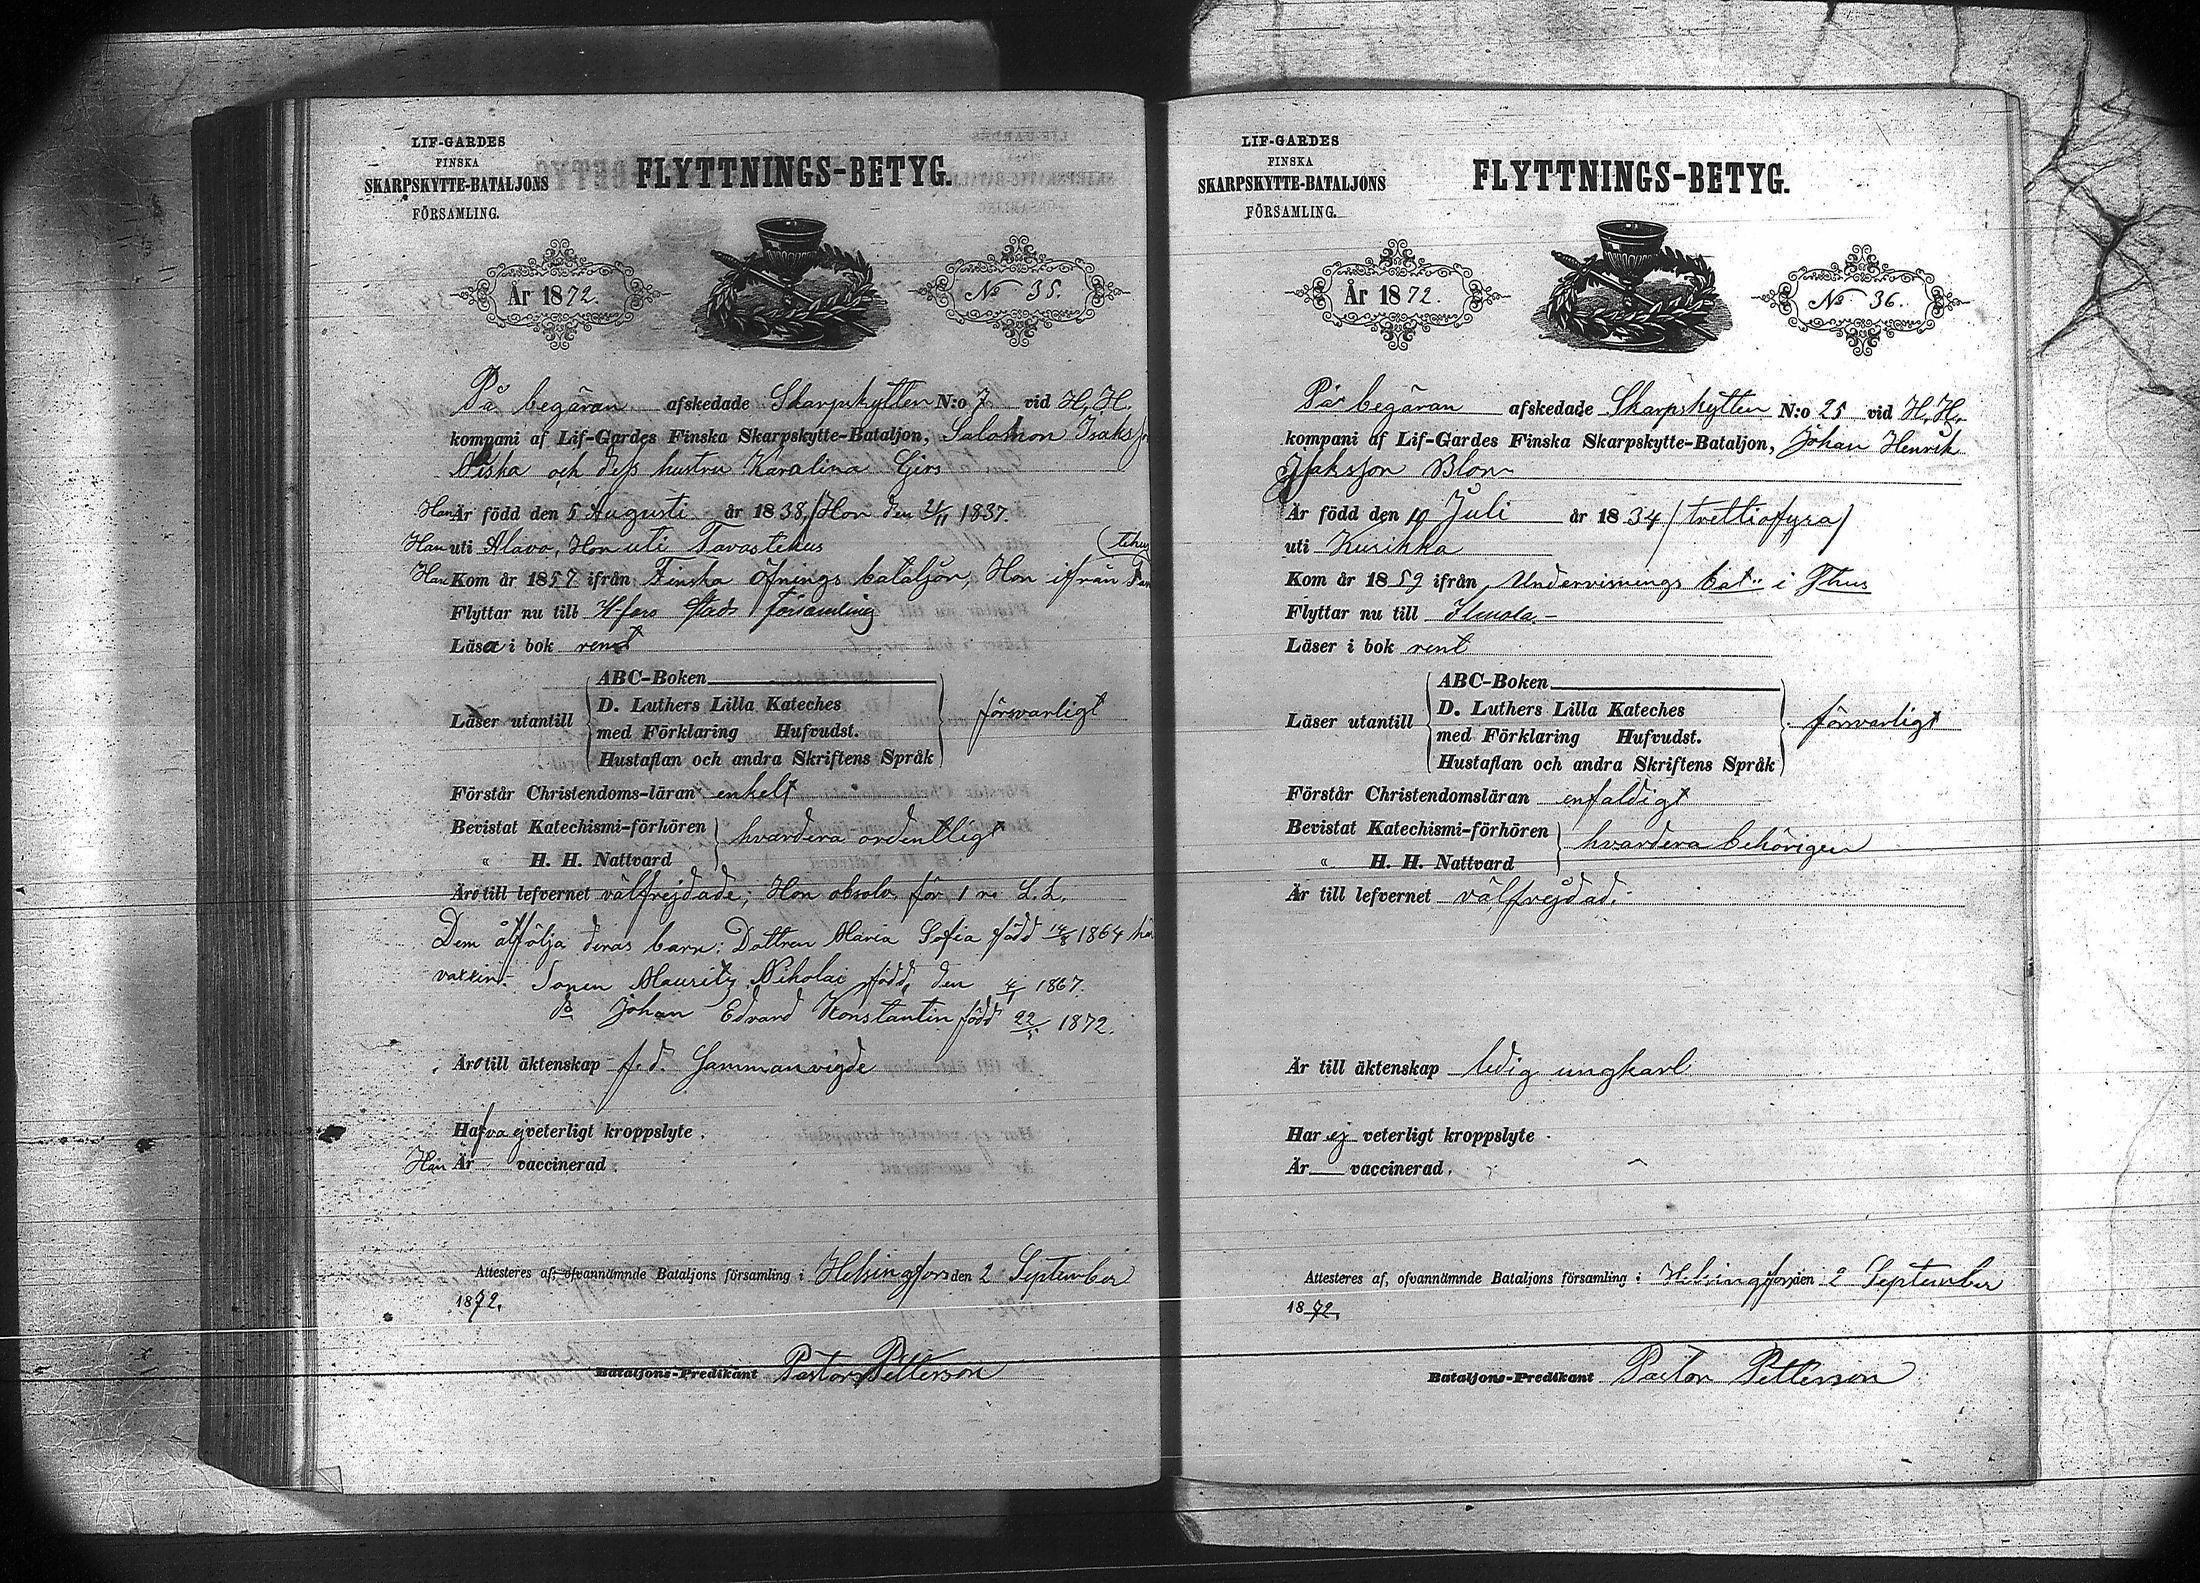 LIF-GARDES
FINSKA
SKARPSKYTTE-BATALJONS
FÖRSAMLING.
FLYTTNINGS-BETYG.
År 1872.
No 35.
På begäran afskedade Skarpskytten N:o 7 vid H. H.
kompani af Lif-Gardes Finska Skarpskytte-Bataljon, Salomon Isaksson
Niska och dess hustru Karolina Girs
Han Är född den 5 Augusti år 1838, Hon den 2/11 1837.
Han uti Alavo, Hon uti Tavastehus
Han Kom år 1857 ifrån Finska Öfnings bataljon, Hon ifrån Tavastehus
Flyttar nu till H-fors stads församling
Läsa i bok rent
Läser utantill
ABC-Boken
D. Luthers Lilla Kateches
med Förklaring Hufvudst.
Hustaflan och andra Skriftens Språk
försvarligt
Förstår Christendoms-läran enkelt
Bevistat Katechismi-förhören
" H. H. Nattvard
hvardera ordentligt
Äro till lefvernet välfrejdade; Hon absolv. för 1 r. L. L.
Dem åtfölja deras barn: Dottren Maria Sofia född 14/8 1864
vaccin. Sonen Mauritz Nikolai född den 4/1 1867.
Do Johan Edvard Konstantin född 22/5 1872.
Äro till äktenskap f. d. Sammanvigde
Hafva ej veterligt kroppslyte.
Han Är vaccinerad.
Attesteres af, ofvannämnde Bataljons församling i Helsingfors den 2 September
1872.
Bataljons-Predikant Pastor Petterson
LIF-GARDES
FINSKA
SKARPSKYTTE-BATALJONS
FÖRSAMLING.
FLYTTNINGS-BETYG.
År 1872.
No 36.
På begäran afskedade Skarpskytten N:o 25 vid H. H.
kompani af Lif-Gardes Finska Skarpskytte-Bataljon, Johan Henrik
Isaksson Blom
Är född den 10 Juli år 1834 (trettiofyra)
uti Kurikka
Kom år 1859 ifrån Undervisnings bat. i Thus
Flyttar nu till Ilmola.
Läser i bok rent
Läser utantill
ABC-Boken
D. Luthers Lilla Kateches
med Förklaring Hufvudst.
Hustaflan och andra Skriftens Språk
försvarligt
Förstår Christendomsläran enfaldigt
Bevistat Katechismi-förhören
" H. H. Nattvard
hvardera behörigen
Är till lefvernet välfrejdad.
Är till äktenskap ledig ungkarl
Har ej veterligt kroppslyte.
Är vaccinerad.
Attesteres af, ofvannämnde Bataljons församling i Helsingfors den 2 September
1872.
Bataljons-Predikant Pastor Petterson